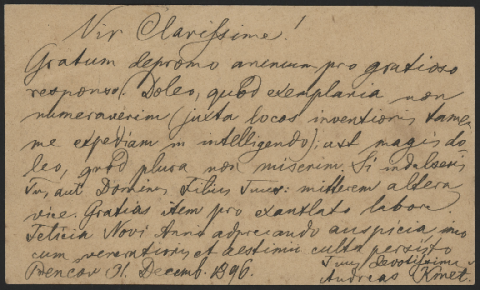 Vir Clarissime!
Gratum depromo animum pro gratioso
responso. Doleo, quod exemplaria non
numeraverim (juxta locos inventionis tamen
me expediam in intelligendo); ast magis do-
leo, quod plura non miserim. Si indulseris
Tu, aut Dominus Filius Tuus: mitterem altera
vice. Gratias item pro exantlato labore
Felicia Novi Anni adprecando auspicia, imo
cum veneratione et aestimii cultu persisto
Prencov 31. Decemb. 1896. Tuus devotissimus
Andreas Kmet.